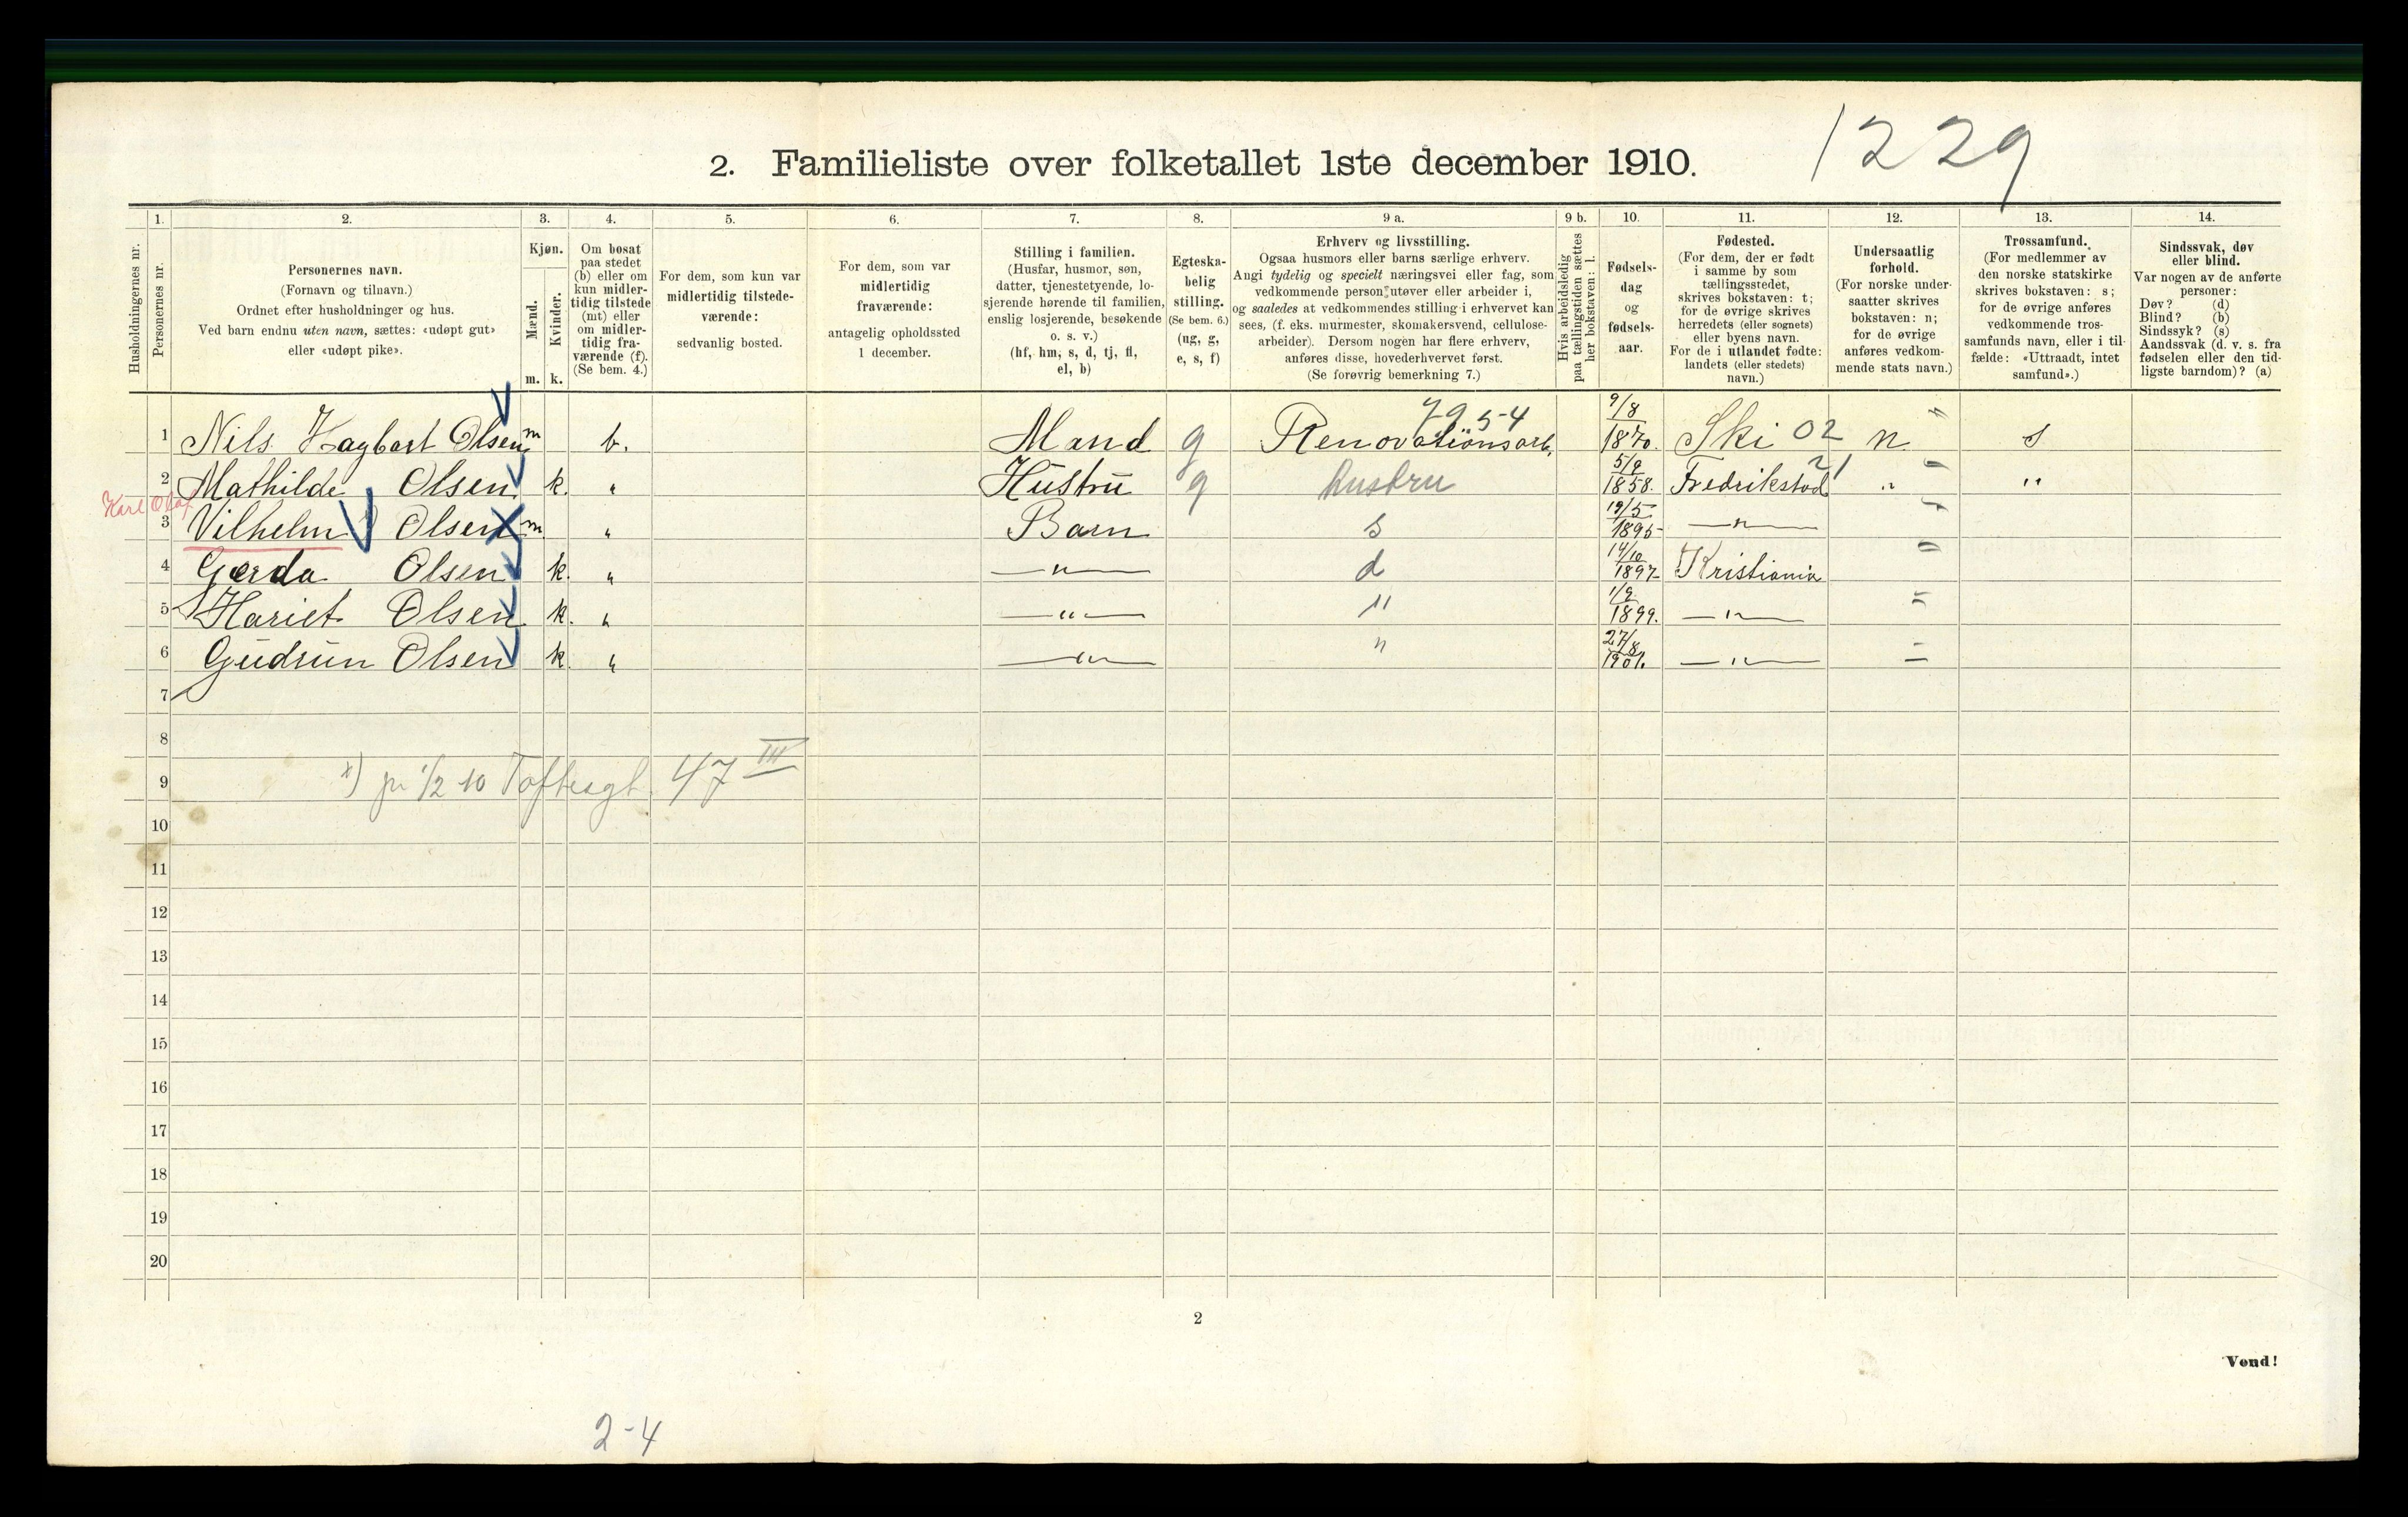 1229
2. Familieliste over folketallet 1ste december 1910.
1. 2. 3. 4. 5. 6. 7. 8. 9 a. 9 b. 10. 11. 12. 13. 14.
Husholdningernes nr.
Personernes nr.
Personernes navn.
(Fornavn og tilnavn.)
Ordnet efter husholdninger og hus.
Ved barn endnu uten navn, sættes: «udøpt gut»
eller «udøpt pike».
Kjøn.
Mænd.
Kvinder.
m. k.
Om bosat
paa stedet
(b) eller om
kun midler-
tidig tilstede
(mt) eller
om midler-
tidig fra-
værende (f).
(Se bem. 4.)
For dem, som kun var
midlertidig tilstede-
værende:
sedvanlig bosted.
For dem, som var
midlertidig
fraværende:
antagelig opholdssted
1 december.
Stilling i familien.
(Husfar, husmor, søn,
datter, tjenestetyende, lo-
sjerende hørende til familien,
enslig losjerende, besøkende
o. s. v.)
(hf, hm, s, d, tj, fl,
el, b)
Egteska-
belig
stilling.
(Se bem. 6.)
(ug, g,
e, s, f)
Erhverv og livsstilling.
Ogsaa husmors eller barns særlige erhverv.
Angi tydelig og specielt næringsvei eller fag, som
vedkommende person utøver eller arbeider i,
og saaledes at vedkommendes stilling i erhvervet kan
sees, (f. eks. murmester, skomakersvend, cellulose-
arbeider). Dersom nogen har flere erhverv,
anføres disse, hovederhvervet først.
(Se forøvrig bemerkning 7.)
Hvis arbeidsledig
paa tællingstiden sættes
her bokstaven: l.
Fødsels-
dag
og
fødsels-
aar.
Fødested.
(For dem, der er født
i samme by som
tællingsstedet,
skrives bokstaven: t;
for de øvrige skrives
herredets (eller sognets)
eller byens navn.
For de i utlandet fødte:
landets (eller stedets)
navn.)
Undersaatlig
forhold.
(For norske under-
saatter skrives
bokstaven: n;
for de øvrige
anføres vedkom-
mende stats navn.)
Trossamfund.
(For medlemmer av
den norske statskirke
skrives bokstaven: s;
for de øvrige anføres
vedkommende tros-
samfunds navn, eller i til-
fælde: «Uttraadt, intet
samfund».)
Sindssvak, døv
eller blind.
Var nogen av de anførte
personer:
Døv? (d)
Blind? (b)
Sindssyk? (s)
Aandssvak (d. v. s. fra
fødselen eller den tid-
ligste barndom)? (a)
7954
1 Nils Hagbart Olsen m b. Mand g Renovationsarb. 9/8 1870. Ski 02 n s
2 Mathilde Olsen k. " Hustru g hustru 5/9 1858. Fredrikstad " "
Karl Olaf
3 Vilhelm Olsen m " Barn s 19/5 1895 — " —
4 Gerda Olsen k. " — " — d 14/10 1897 Kristiania
5 Hariet Olsen k. " — " — " 1/9 1899. — " —
6 Gudrun Olsen k. " — " — " 27/8 1901. — " —
7
8
9 x) pr 1/2 10 Toftesgt. 47 III
10
11
12
13
14
15
16
17
18
19
20
2
Vend!
2-4